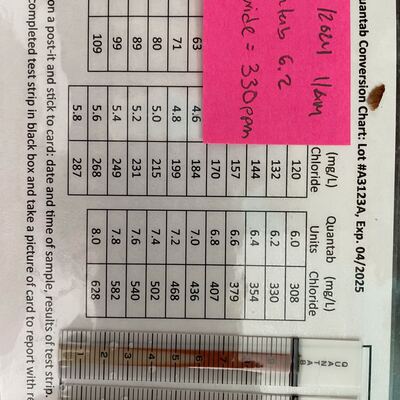 uantab Conversion Chart: Lot #A3123A, Exp. 04/2025
/2024 11am
6.2
= 330ppm
(mg/L) Quantab (mg/L)
Chloride Units Chloride
120 6.0 308
132 6.2 330
144 6.4 354
157 6.6 379
170 6.8 407
63 4.6 184 7.0 436
71 4.8 199 7.2 468
80 5.0 215 7.4 502
89 5.2 231 7.6 540
99 5.4 249 7.8 582
109 5.6 268 8.0 628
5.8 287
on a post-it and stick to card: date and time of sample, results of test strip.
completed test strip in black box and take a picture of card to report with re
QUANTAB
7
6
5
4
3
2
1